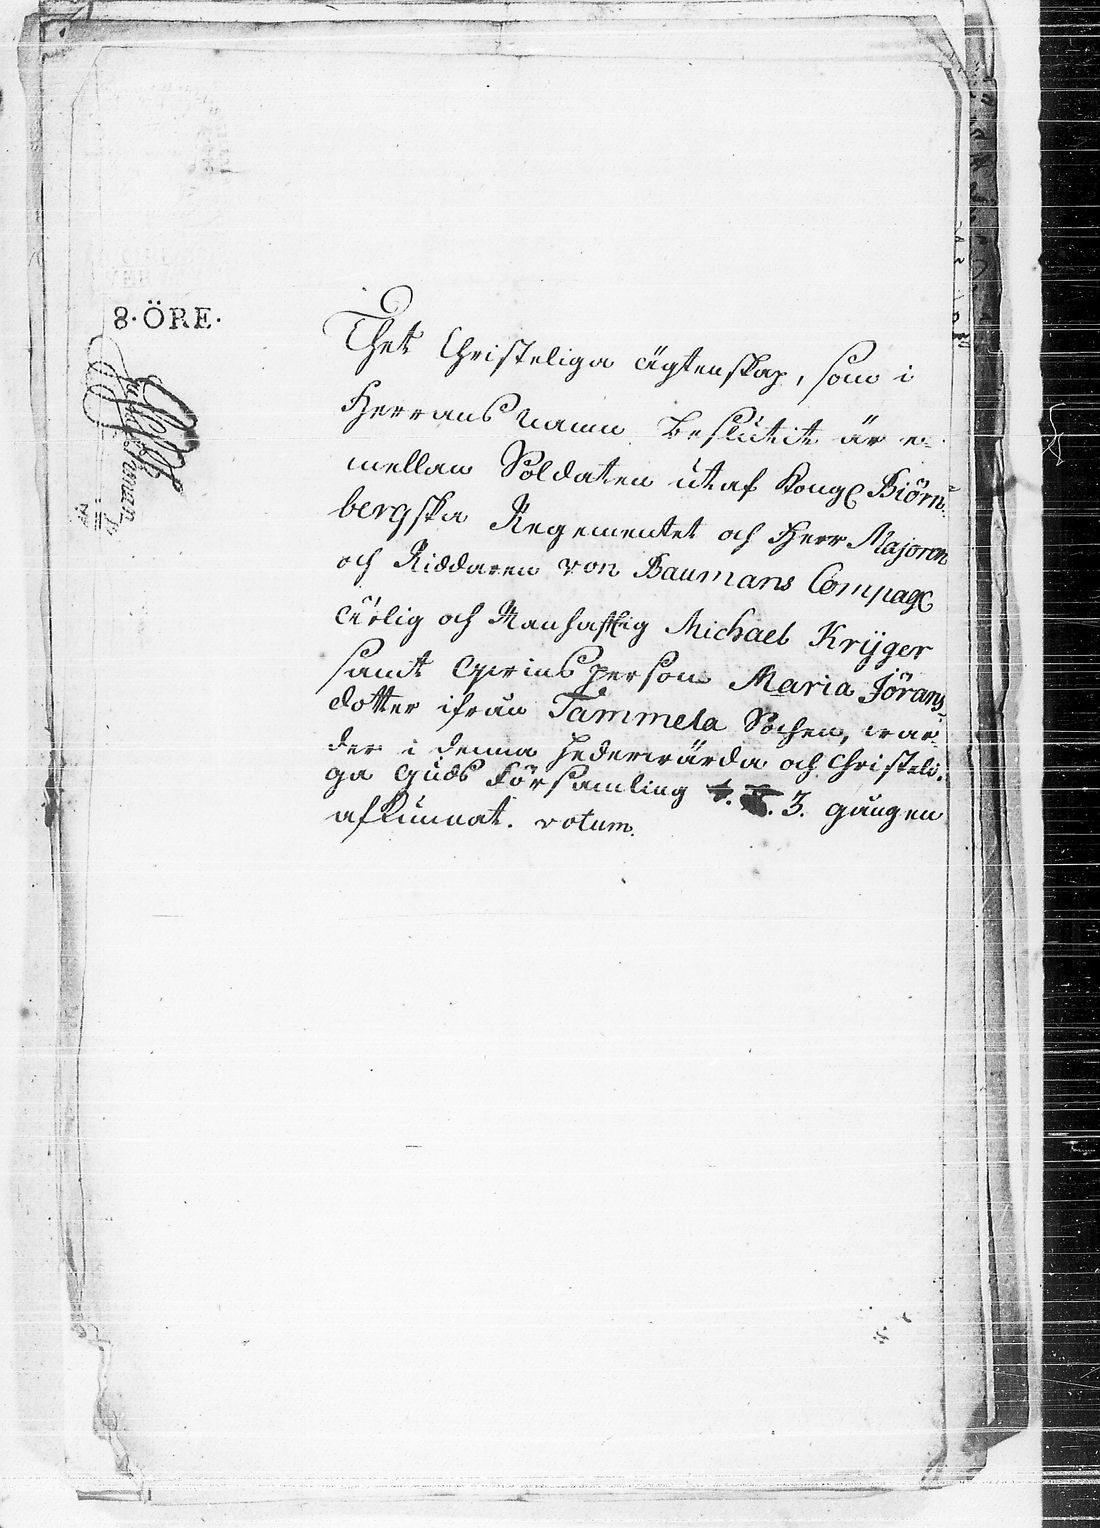 8·ÖRE·
Thet Christeliga ägtenskap, som i
Herrans Namn beslutit är e-
mellan Soldaten utaf Kongl Biörn-
bergska Regementet och Herr Majoren
och Riddaren von Baumans Compagi
ärlig och Manhafftig Michael Krÿger
samt qwins person Maria Jörans-
dotter ifrån Tammela Sochen, war-
der i denna hederwärda och Christeli-
ga Guds Församling 3. gången
afkunnat. votum.